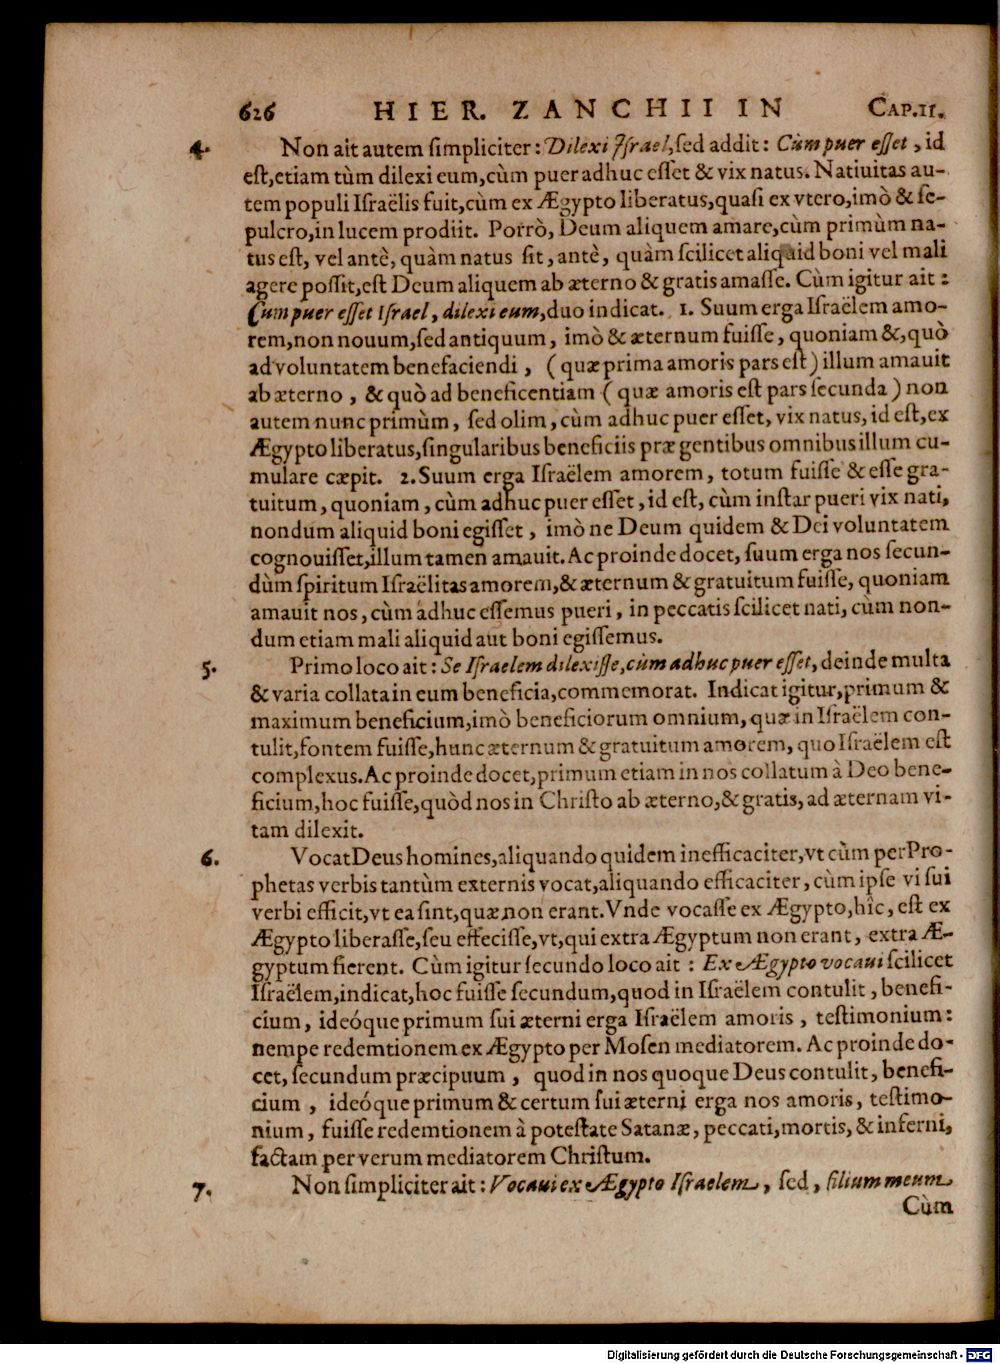 626 HIER. ZANCHII IN CAP.II.
4. Non ait autem simpliciter: Dilexi Israel, sed addit: Cùm puer esset, id
est, etiam tùm dilexi eum, cùm puer adhuc esset & vix natus. Natiuitas au-
tem populi Israëlis fuit, cùm ex Ægypto liberatus, quasi ex vtero, imò & se-
pulcro, in lucem prodiit. Porrò, Deum aliquem amare, cùm primùm na-
tus est, vel antè, quàm natus sit, antè, quàm scilicet aliquid boni vel mali
agere possit, est Deum aliquem ab æterno & gratis amasse. Cùm igitur ait:
Cum puer esset Israel, dilexi eum, duo indicat. 1. Suum erga Israëlem amo-
rem, non nouum, sed antiquum, imò & æternum fuisse, quoniam &, quò
ad voluntatem benefaciendi, (quæ prima amoris pars est) illum amauit
ab æterno, & quò ad beneficentiam (quæ amoris est pars secunda) non
autem nunc primùm, sed olim, cùm adhuc puer esset, vix natus, id est, ex
Ægypto liberatus, singularibus beneficiis præ gentibus omnibus illum cu-
mulare cæpit. 2. Suum erga Israëlem amorem, totum fuisse & esse gra-
tuitum, quoniam, cùm adhuc puer esset, id est, cùm instar pueri vix nati,
nondum aliquid boni egisset, imò ne Deum quidem & Dei voluntatem
cognouisset, illum tamen amauit. Ac proinde docet, suum erga nos secun-
dùm spiritum Israëlitas amorem, & æternum & gratuitum fuisse, quoniam
amauit nos, cùm adhuc essemus pueri, in peccatis scilicet nati, cùm non-
dum etiam mali aliquid aut boni egissemus.
5. Primo loco ait: Se Israelem dilexisse, cùm adhuc puer esset, deinde multa
& varia collata in eum beneficia, commemorat. Indicat igitur, primum &
maximum beneficium, imò beneficiorum omnium, quæ in Israëlem con-
tulit, fontem fuisse, hunc æternum & gratuitum amorem, quo Israëlem est
complexus. Ac proinde docet, primum etiam in nos collatum à Deo bene-
ficium, hoc fuisse, quòd nos in Christo ab æterno, & gratis, ad æternam vi-
tam dilexit.
6. Vocat Deus homines, aliquando quidem inefficaciter, vt cùm per Pro-
phetas verbis tantùm externis vocat, aliquando efficaciter, cùm ipse vi sui
verbi efficit, vt ea sint, quæ non erant. Vnde vocasse ex Ægypto, hîc, est ex
Ægypto liberasse, seu effecisse, vt, qui extra Ægyptum non erant, extra Æ-
gyptum fierent. Cùm igitur secundo loco ait: Ex Ægypto vocaui scilicet
Israëlem, indicat, hoc fuisse secundum, quod in Israëlem contulit, benefi-
cium, ideóque primum sui æterni erga Israëlem amoris, testimonium:
nempe redemtionem ex Ægypto per Mosen mediatorem. Ac proinde do-
cet, secundum præcipuum, quod in nos quoque Deus contulit, benefi-
cium, ideóque primum & certum sui æterni erga nos amoris, testimo-
nium, fuisse redemtionem à potestate Satanæ, peccati, mortis, & inferni,
factam per verum mediatorem Christum.
7. Non simpliciter ait: Vocaui ex Ægypto Israelem, sed, filium meum
Cùm
Digitalisierung gefördert durch die Deutsche Forschungsgemeinschaft - DFG